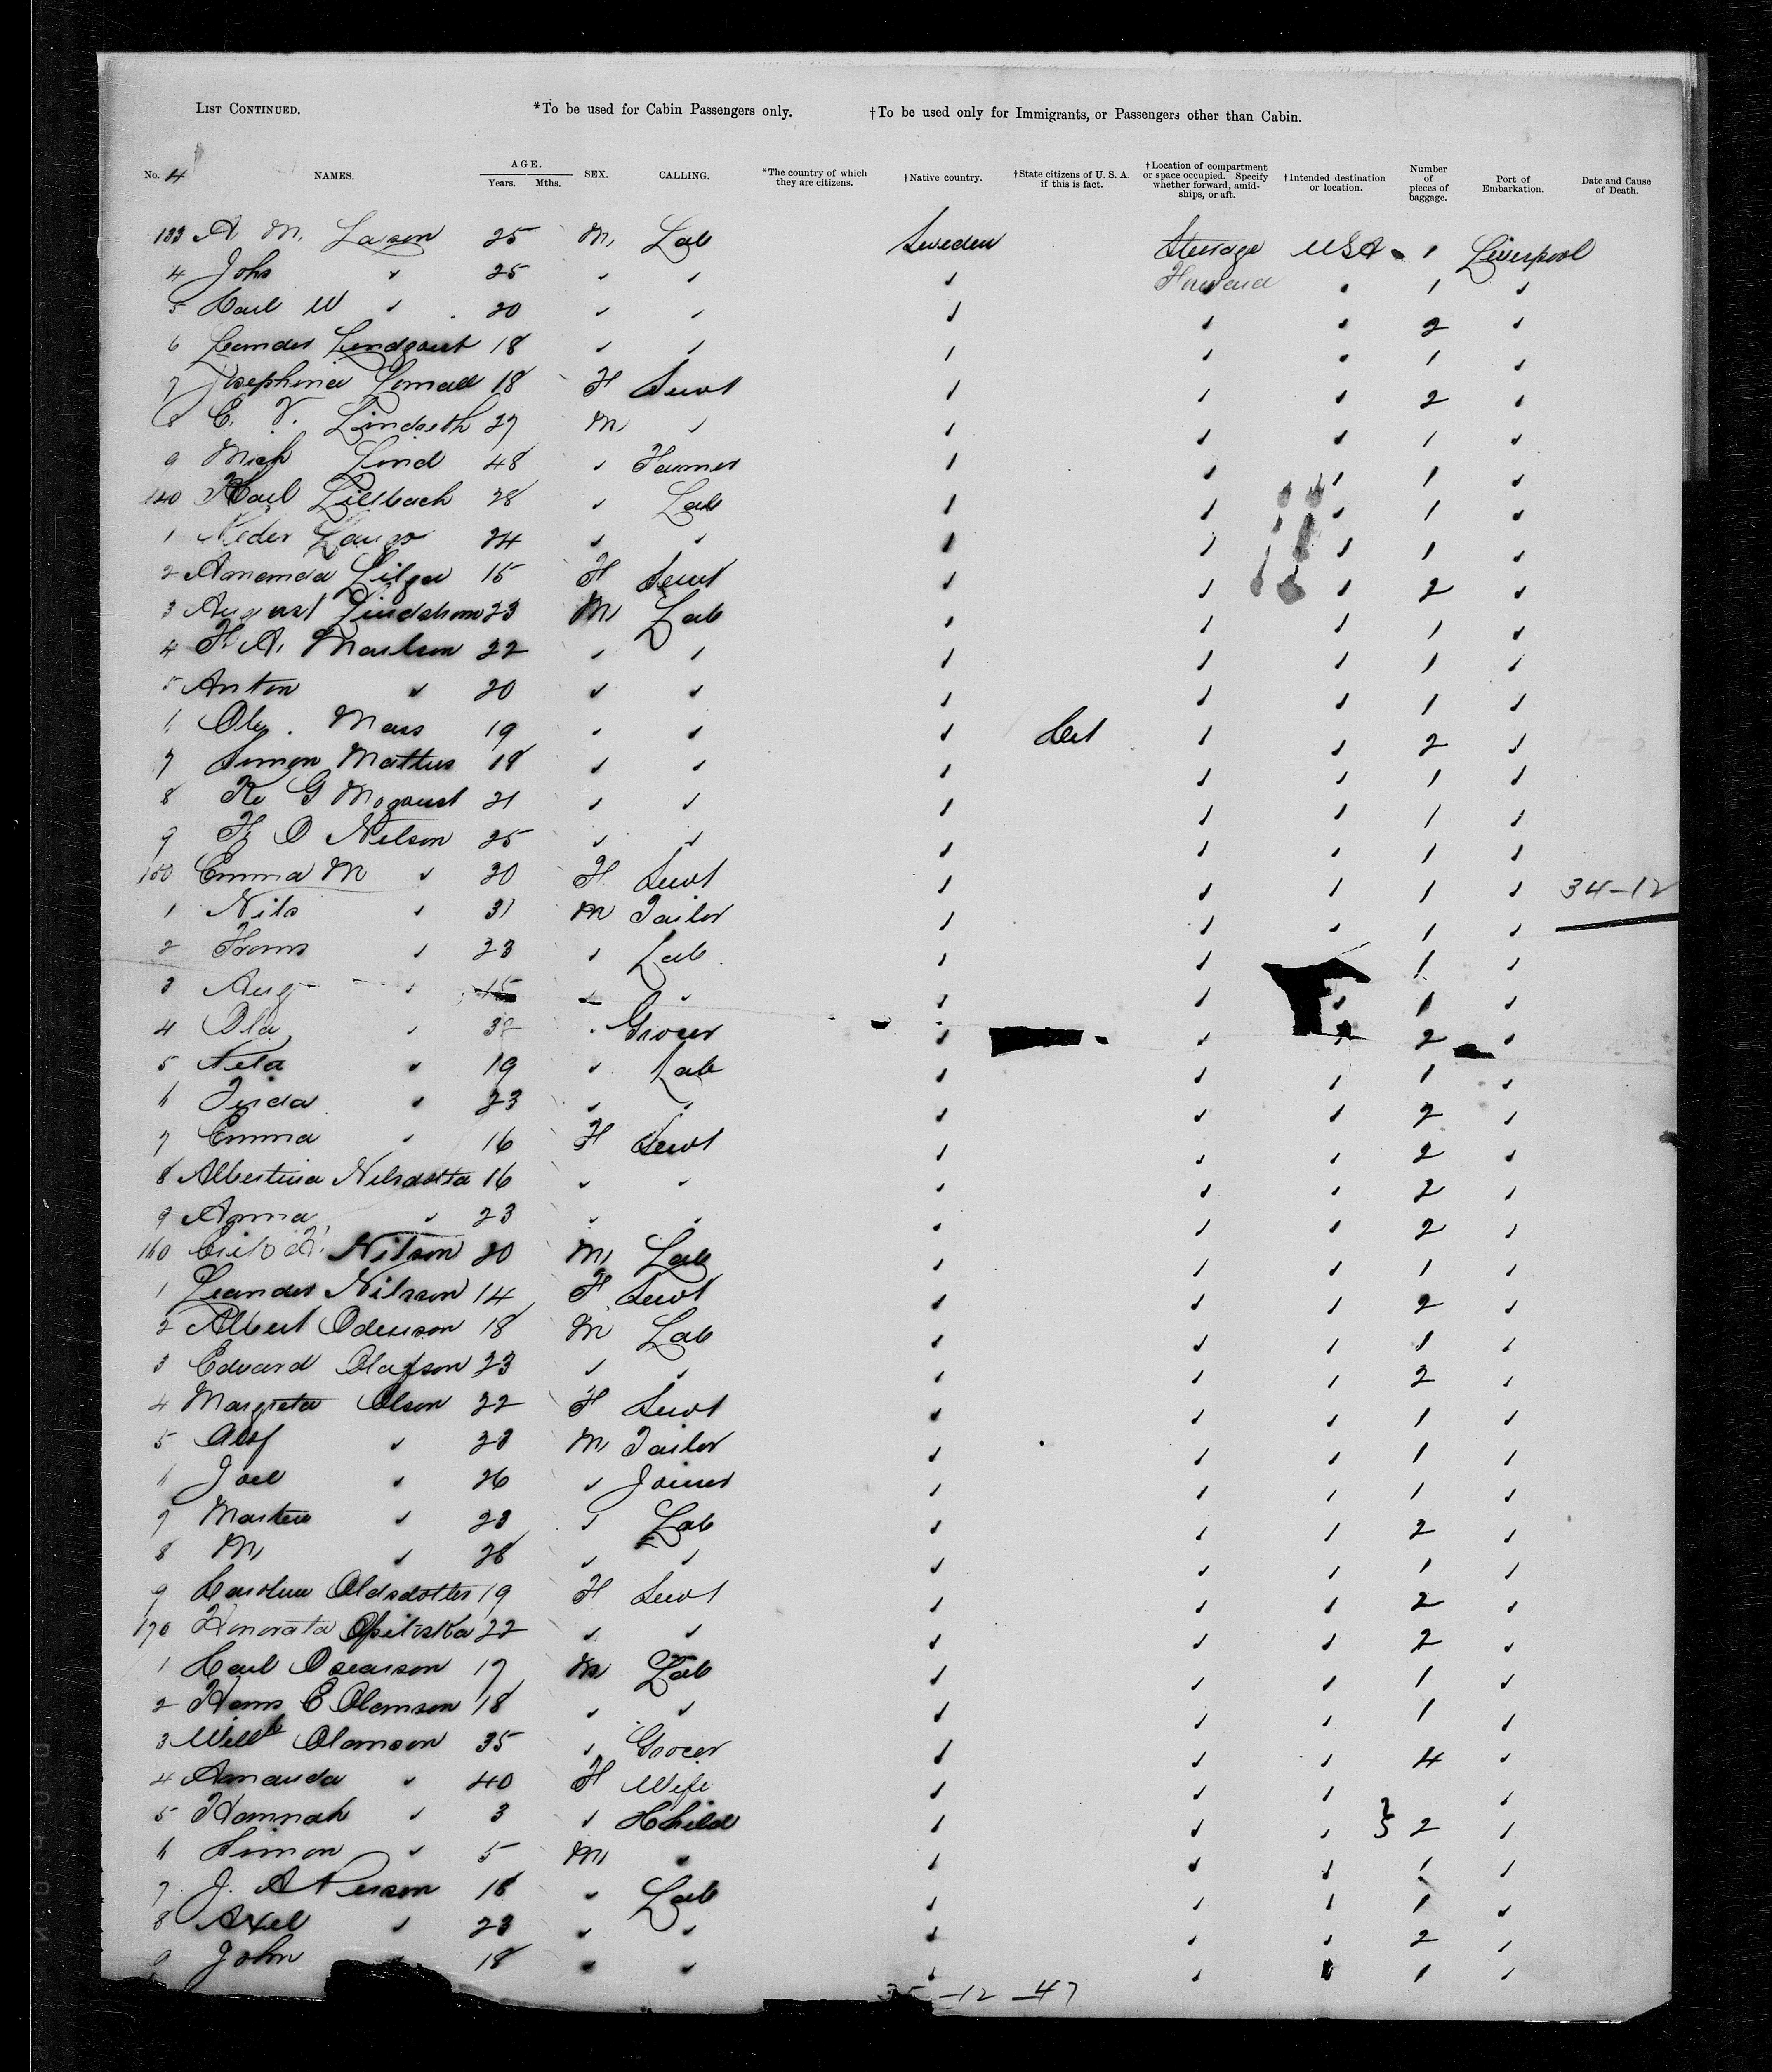 LIST CONTINUED. *To be used for Cabin Passengers only. †To be used only for Immigrants, or Passengers other than Cabin.
No. 4 NAMES. AGE. Years. Mths. SEX. CALLING. *The country of which they are citizens. †Native country. †State citizens of U. S. A. if this is fact. †Location of compartment or space occupied. Specify whether forward, amidships, or aft. †Intended destination or location. Number of pieces of baggage. Port of Embarkation. Date and Cause of Death.
133 A. M. Lason 25 M Lab Sweden Steerage USA 1 Liverpool
4 John " 25 " " " Forward " 1 "
5 Carl W " 20 " " " " " 2 "
6 Leander Lindquist 18 " " " " " 1 "
7 Josephina 18 F Servt " " " 2 "
8 C. Lindseth 27 M " " " " 1 "
9 Mich Lind 48 " Farmer " " " 1 "
140 Karl Lillbach 28 " Lab " " " 1 "
1 24 " " " " " 1 "
2 Amanda Lilja 15 F Servt " " " 2 "
3 August Lindstrom 23 M Lab " " " 1 "
4 F. A. Maulson 22 " " " " " 1 "
5 Anton " 20 " " " " " 1 "
6 Mass 19 " " " " " 2 "
7 Simon Mattus 18 " " " " " 1 "
8 G 21 " " " " " 1 "
9 O Nelson 25 " " " " " 1 "
150 Emma M " 20 F Servt " " " 1 " 34-12
1 Nils " 31 M Tailor " " " 1 "
2 " 23 " Lab " " " 1 "
3 Aug " 15 " " " " " 1 "
4 Ola " " Grocer " " " 2 "
5 Nela " 19 " Lab " " " 1 "
6 " 23 " " " " " 2 "
7 Emma " 16 F Servt " " " 2 "
8 Albertina Nilsdotta 16 " " " " " 2 "
9 Anna " 23 " " " " " 2 "
160 Nilson 20 M Lab " " " 1 "
1 Leander Nilsson 14 F Servt " " " 2 "
2 Albert Odenson 18 M Lab " " " 1 "
3 Edvard Olafson 23 " " " " " 2 "
4 Margreta Olson 22 F Servt " " " 1 "
5 Olof " 23 M Tailor " " " 1 "
6 Joel " 26 " Joiner " " " 1 "
7 Marten " 23 " Lab " " " 2 "
8 M " 28 " " " " " 1 "
9 Carolina Oldsdotter 19 F Servt " " " 2 "
170 Honorata Opitoska 22 " " " " " 2 "
1 Carl Oscarson 17 M Lab " " " 1 "
2 Hans E Olamson 18 " " " " " 1 "
3 Will Olamson 35 " Grocer " " " 4 "
4 Amanda " 40 F Wife " " " "
5 Hannah " 3 " Child " " " 2 "
6 Simon " 5 M " " " " 1 "
7 J. A Person 18 " Lab " " " 1 "
8 Axel " 23 " " " " " 2 "
9 John " 18 " " " " " 1 "
35-12-47